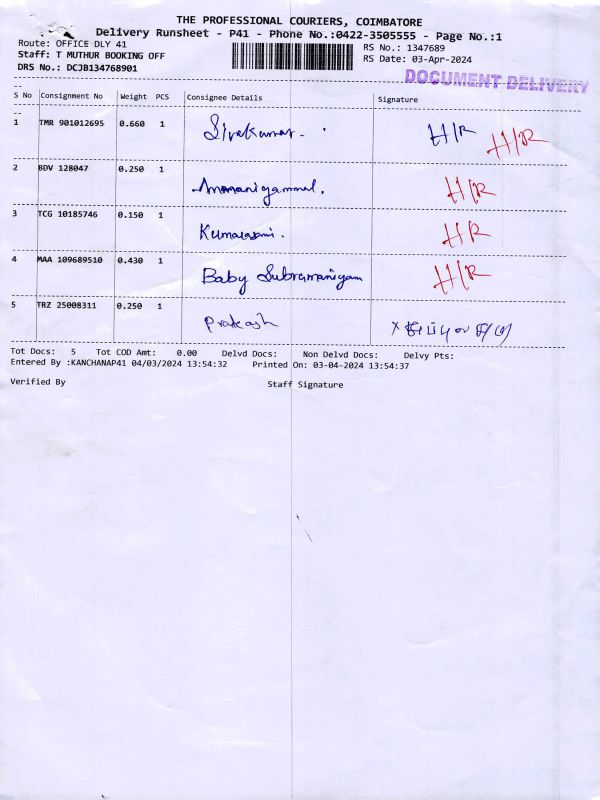 THE PROFESSIONAL COURIERS, COIMBATORE
Delivery Runsheet - P41 - Phone No.:0422-3505555 - Page No.:1
Route: OFFICE DLY 41
RS No.: 1347689
Staff: T MUTHUR BOOKING OFF
RS Date: 03-Apr-2024
DRS No.: DCJB134768901
DOCUMENT DELIVERY
S No Consignment No Weight PCS Consignee Details Signature
1 TMR 901012695 0.660 1 Sivakumar. H/R H/R
2 BDV 128047 0.250 1 H/R
3 TCG 10185746 0.150 1 Kumarasami. H/R
4 MAA 109689510 0.430 1 Baby Subramaniyam H/R
5 TRZ 25008311 0.250 1 Prakash
Tot Docs: 5 Tot COD Amt: 0.00 Delvd Docs: Non Delvd Docs: Delvy Pts:
Entered By :KANCHANAP41 04/03/2024 13:54:32 Printed On: 03-04-2024 13:54:37
Verified By Staff Signature